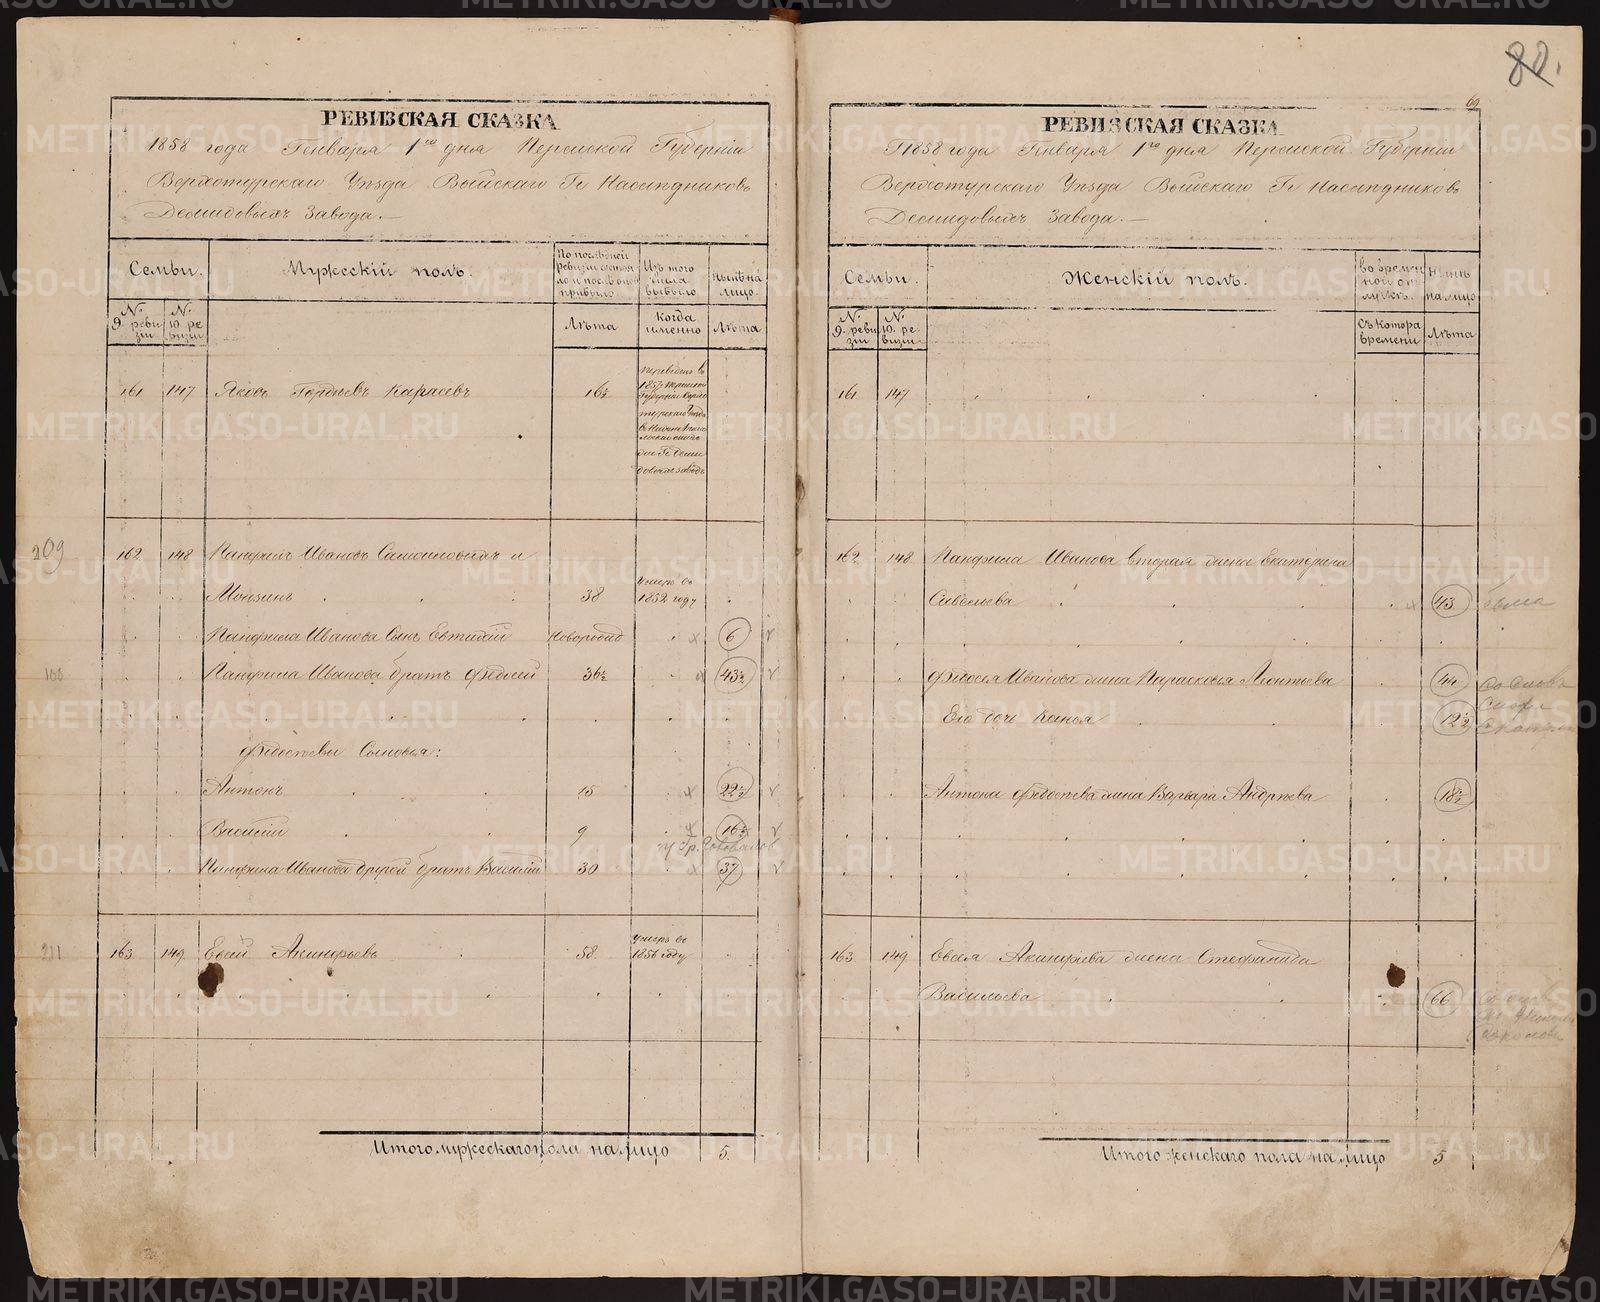 80.
69
РЕВИЗСКАЯ СКАЗКА
1858 года Генваря 1го дня Пермской Губерніи
Верхотурскаго Уѣзда Выйскаго Гг Насѣдниковъ
Демидовыхъ завода.—
Семьи.
Мужескій полъ.
По послѣдней ревизіи состояло и послѣ оной прибыло
Изъ того числа выбыло
Нынѣ на лицо.
№ 9. ревизіи
№ 10. ревизіи
Лѣта
когда именно
Лѣта
161
147
Яковъ Гордѣевъ Карасевъ
16½
Переведенъ въ
1857 Пермской
Губерніи Верхо
турскаго Уѣзда
въ Нижне Тагиль
209
162
148
Панфилъ Ивановъ Самоиловыхъ и
Монзинъ
38
умеръ въ
1852 году
Панфила Иванова сынъ Евтихій
Новорожд
6
Панфила Иванова братъ Федосей
36½
43½
Федосѣевы Сыновья:
Антонъ
15
22½
Василій
9
16½
Панфила Иванова другой братъ Василій
30
37
211
163
149
Евсей Акинфьевъ
58
умеръ въ
1856 году
Итого мужескаго пола на лицо
5.
РЕВИЗСКАЯ СКАЗКА
1858 года Генваря 1го дня Пермской Губерніи
Верхотурскаго Уѣзда Выйскаго Гг Насѣдниковъ
Демидовыхъ завода.—
Семьи.
Женскій полъ.
Во временной отлучкѣ.
Нынѣ на лицо
№ 9. ревизіи
№ 10. ревизіи
Съ котора времени
Лѣта
161
147
162
148
Панфила Иванова вторая жена Екатерина
Савельева
43
Федосея Иванова жена Парасковья Леонтьева
44
Его дочь
12½
Антона Федосѣева жена Варвара Андрѣева
18½
163
149
Евсея Акинфіева жена Стефанида
Васильева
66
Итого женскаго пола на лицо
5
METRIKI.GASO-URAL.RU